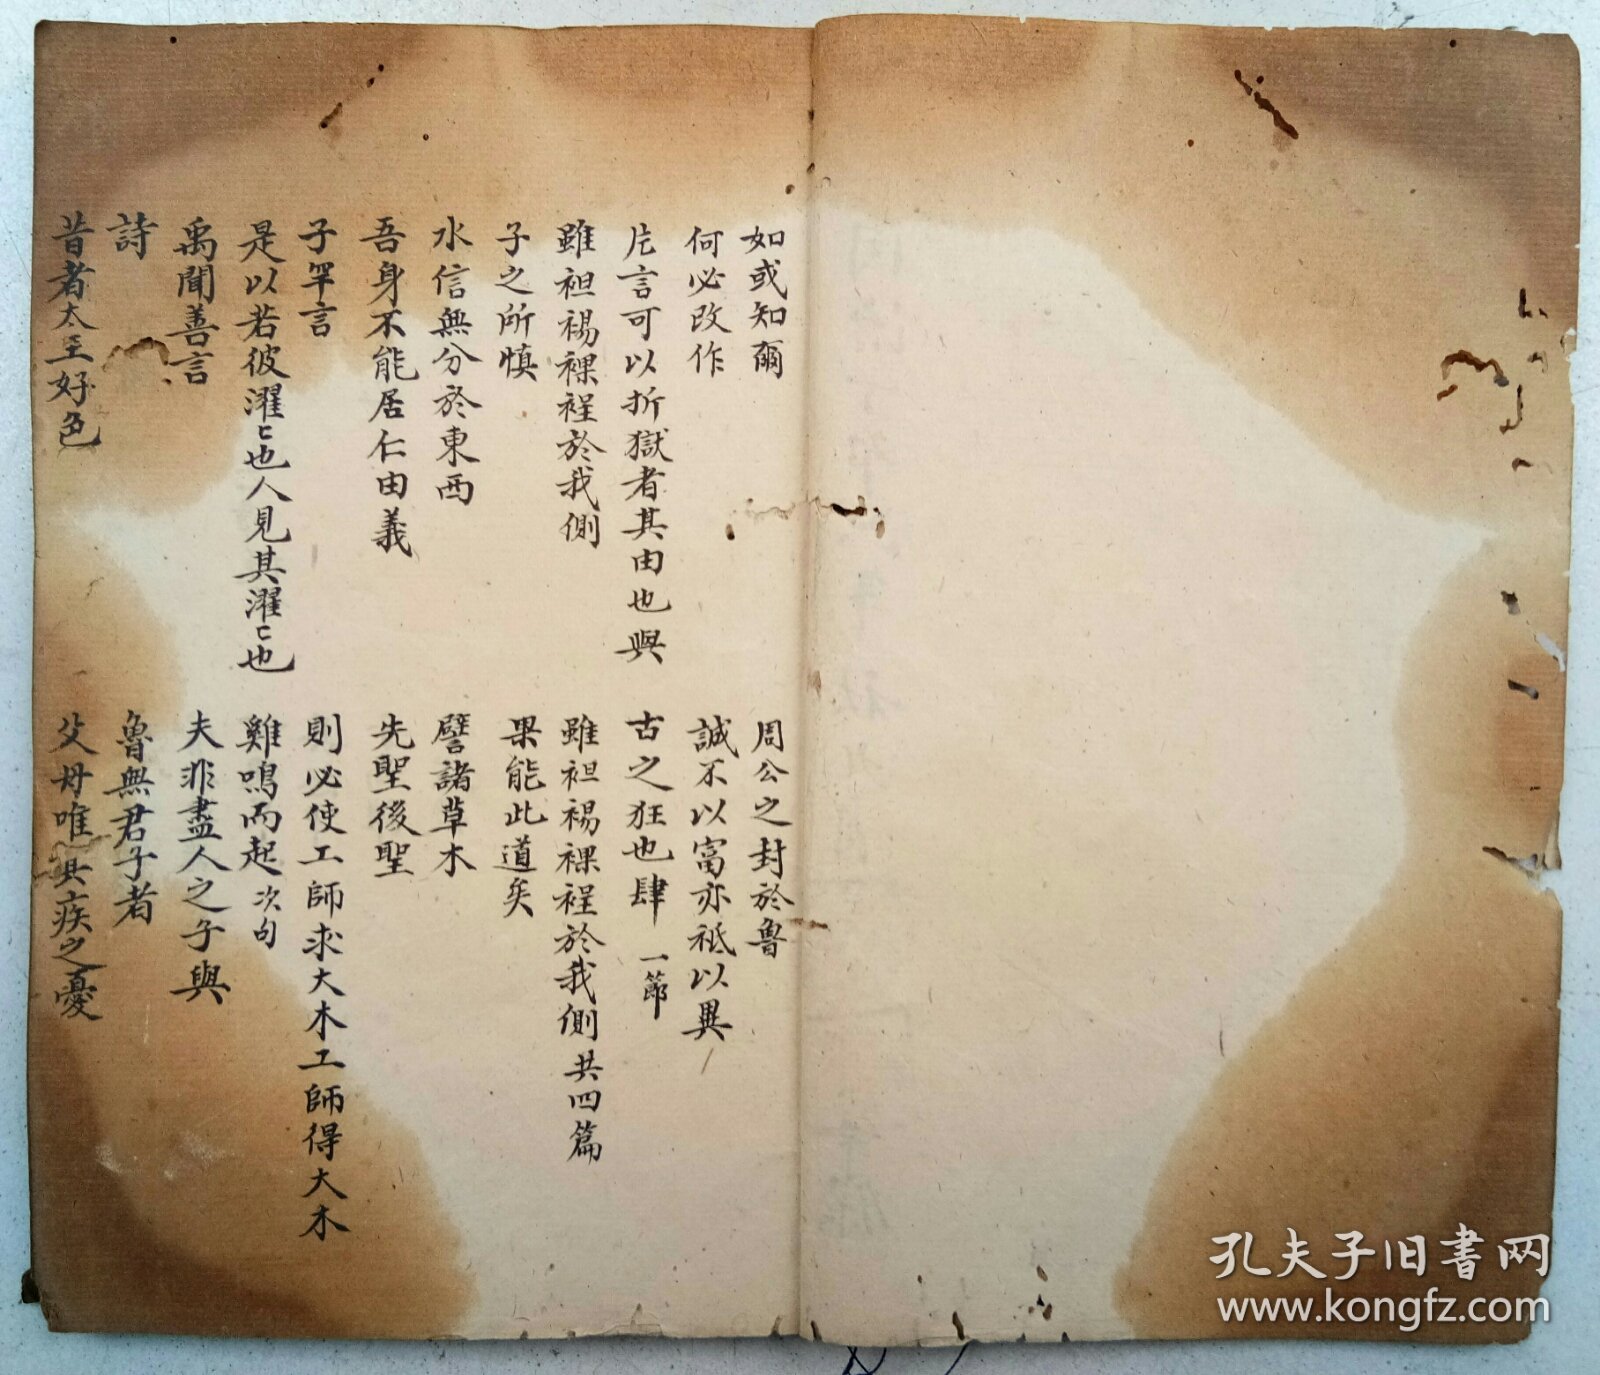 如或知爾
周公之封於魯
何必改作
誠不以富亦祗以異
片言可以折獄者其由也與
古之狂也肆 一節
雖袒裼裸裎於我側
雖袒裼裸裎於我側 共四篇
子之所慎
果能此道矣
水信無分於東西
譬諸草木
吾身不能居仁由義
先聖後聖
子罕言
則必使工師求大木工師得大木
是以若彼濯〻也人見其濯〻也
雞鳴而起 次句
禹聞善言
夫非盡人之子與
詩
魯無君子者
昔者太王好色
父母唯其疾之憂
孔夫子旧书网
www.kongfz.com